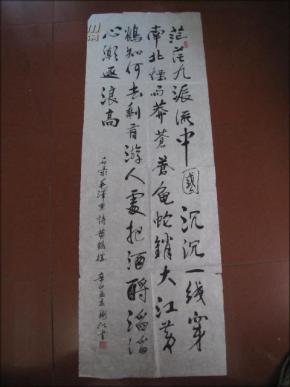 茫茫九派流中國沉沉一线穿
南北煙雨莽蒼蒼龜蛇鎖大江黄
鶴知何去剩有游人處把酒酹滔滔
心潮逐浪高
右录毛泽东詩黄鶴樓